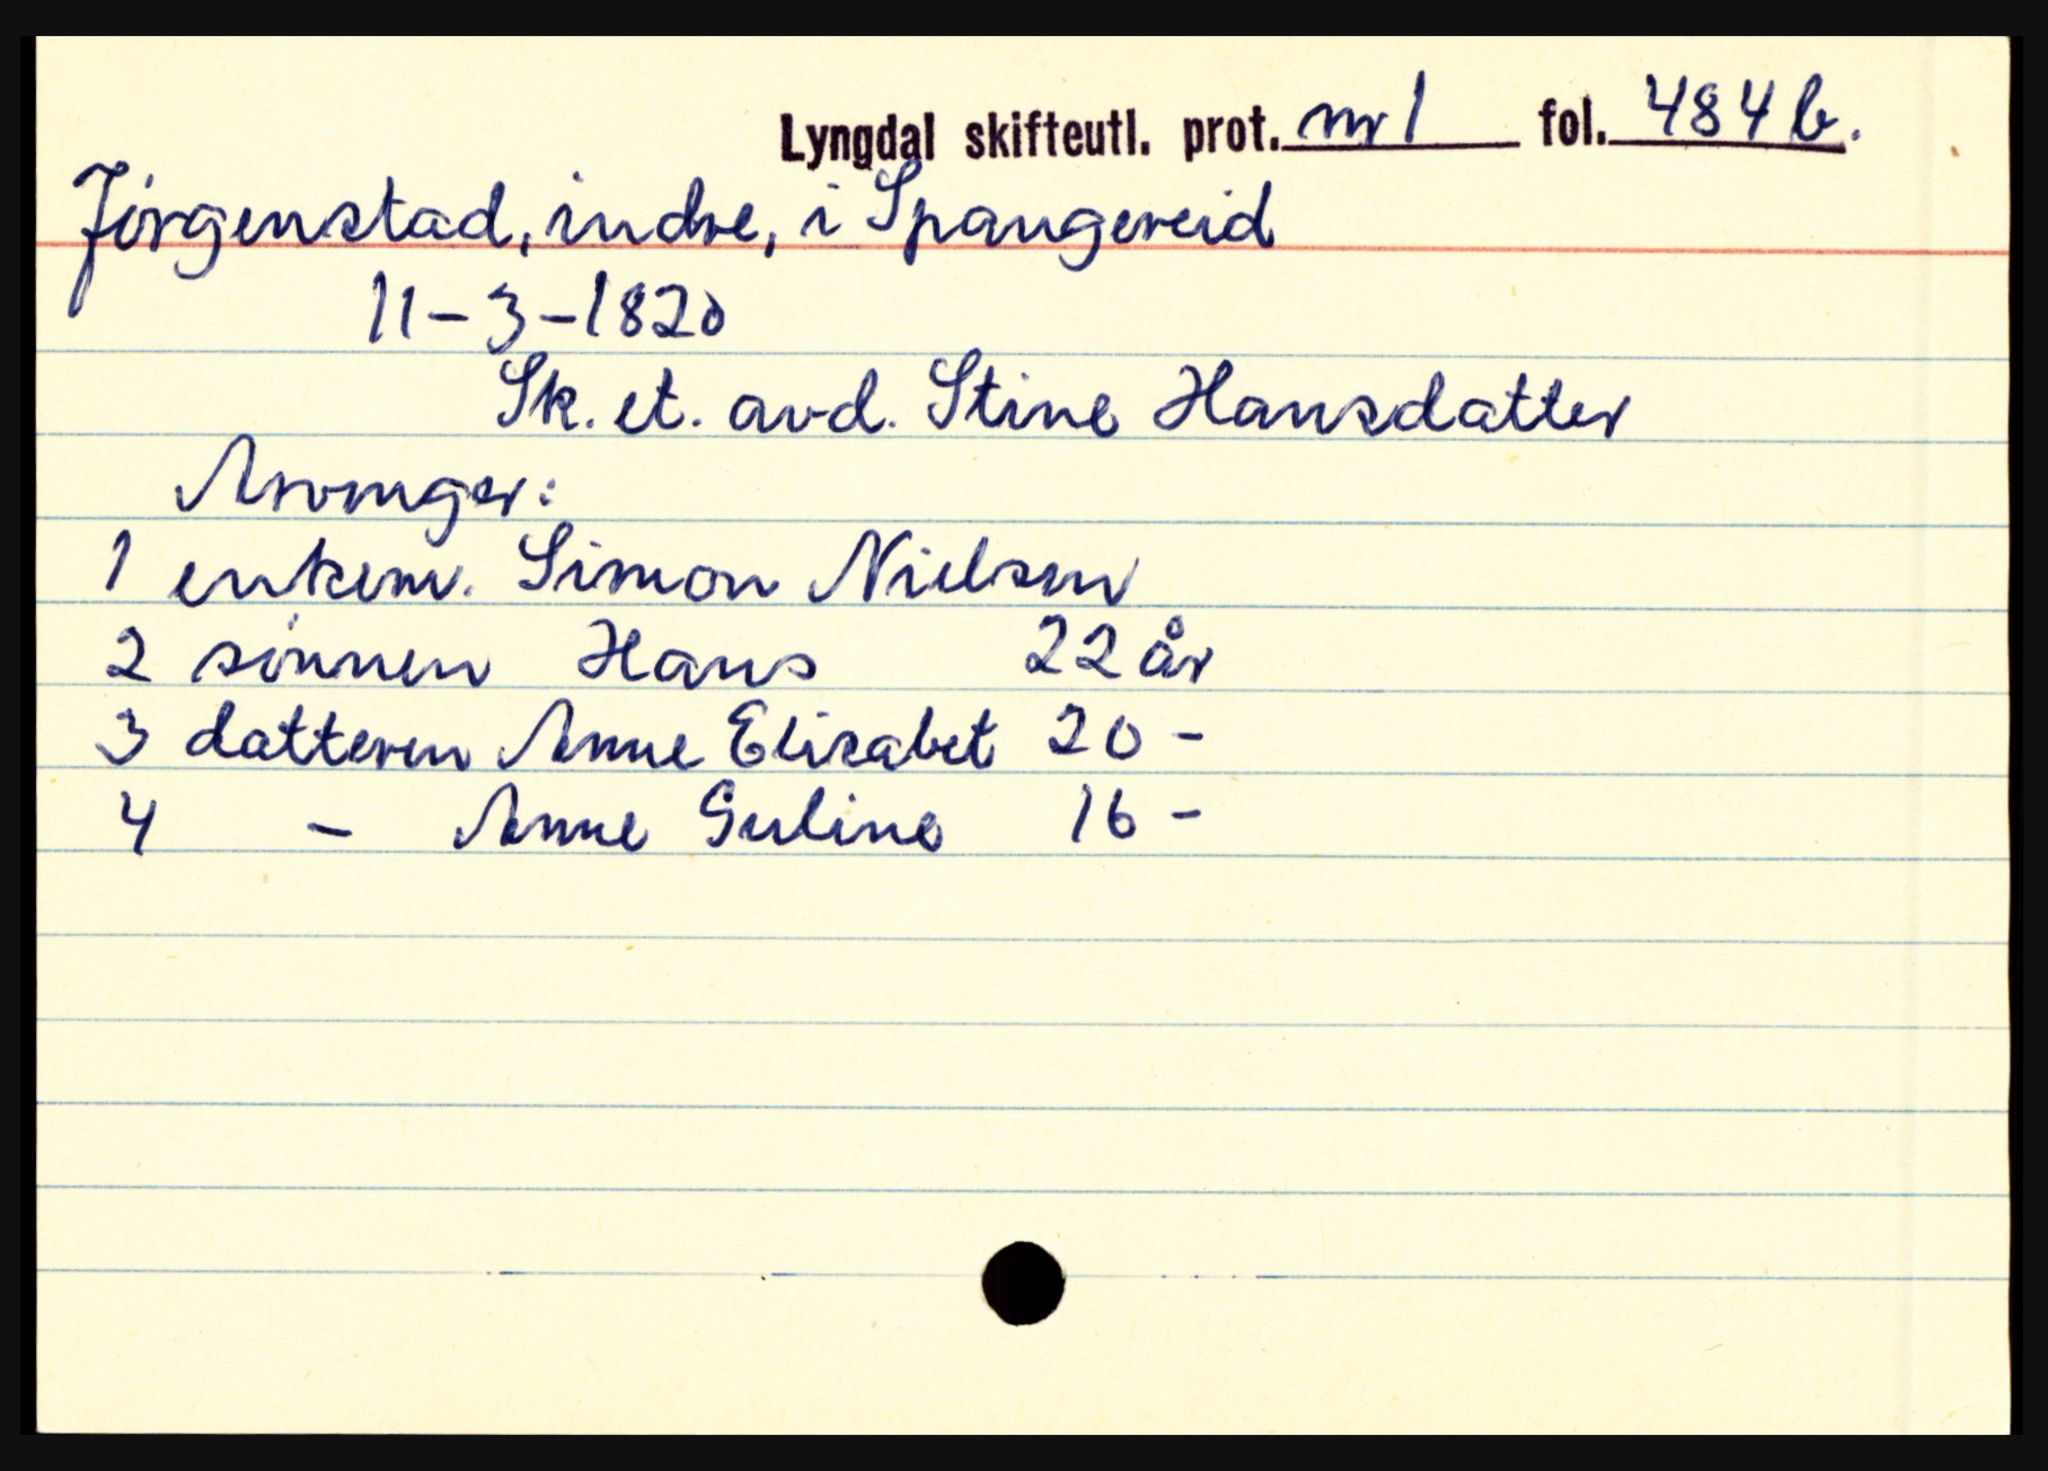 Lyngdal skifteutl. prot. nr 1 fol. 484 b.
Jörgenstad, indre, i Spangereid
11-3-1820
Sk. et. avd. Stine Hansdatter
Arvinger:
1 enkem. Simon Nielsen
2 sönnen Hans 22 år
3 datteren Anne Elisabet 20 -
4 - Anne Guline 16 -